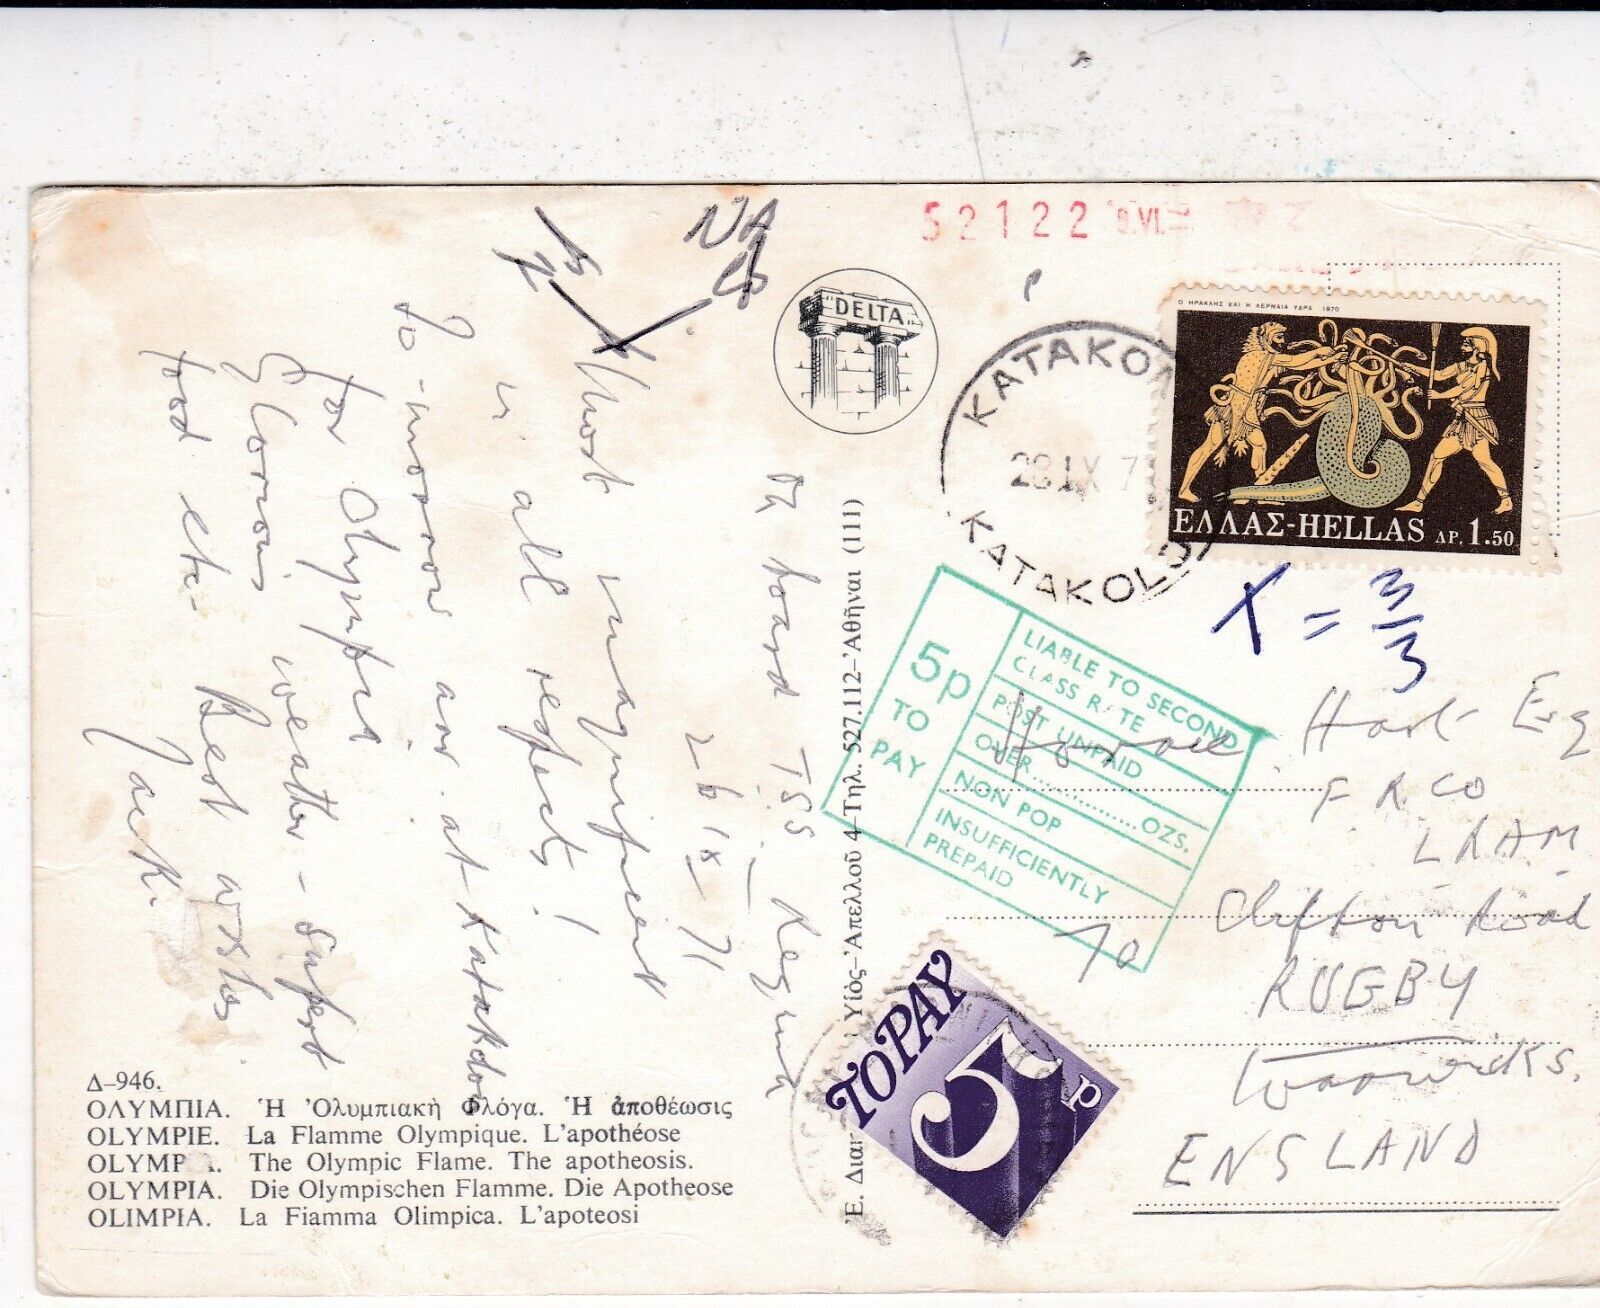 52122
"DELTA"
ΚΑΤΑΚΟΛ
28 IX 7
KATAKOLO
Ο ΗΡΑΚΛΗΣ ΚΑΙ Η ΛΕΡΝΑΙΑ ΥΔΡΑ 1970
ΕΛΛΑΣ-HELLAS ΔΡ. 1.50
X = 3/3
5p
TO
PAY
LIABLE TO SECOND
CLASS RATE
POST UNPAID
OVER..............OZS.
NON POP
INSUFFICIENTLY
PREPAID
On board T.S.S. Regina
26 IX 71
Most magnificent
in all respects!
To-morrow are at Katakolon
for Olympia
Glorious weather - superb
food etc. Best wishes
Jack.
Horace Hart Esq
F R C O
L R A M
70 Clifton Road
RUGBY
Warwicks.
ENGLAND
TO PAY
5p
Δ-946.
ΟΛΥΜΠΙΑ. Ἡ Ὀλυμπιακὴ Φλόγα. Ἡ ἀποθέωσις
OLYMPIE. La Flamme Olympique. L'apothéose
OLYMP A. The Olympic Flame. The apotheosis.
OLYMPIA. Die Olympischen Flamme. Die Apotheose
OLIMPIA. La Fiamma Olimpica. L'apoteosi
Ἐ. Διακ Υἱὸς-Ἀπελλοῦ 4-Τηλ. 527.112-Ἀθῆναι (111)